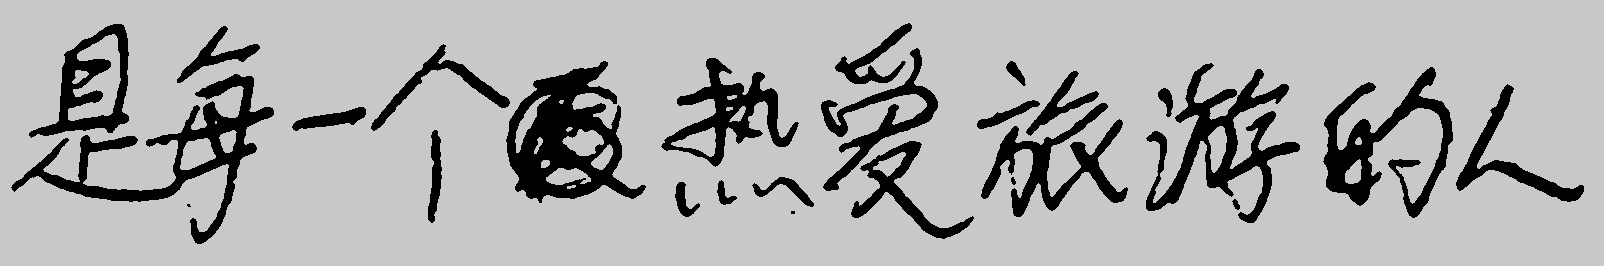 是每一个热爱旅游的人